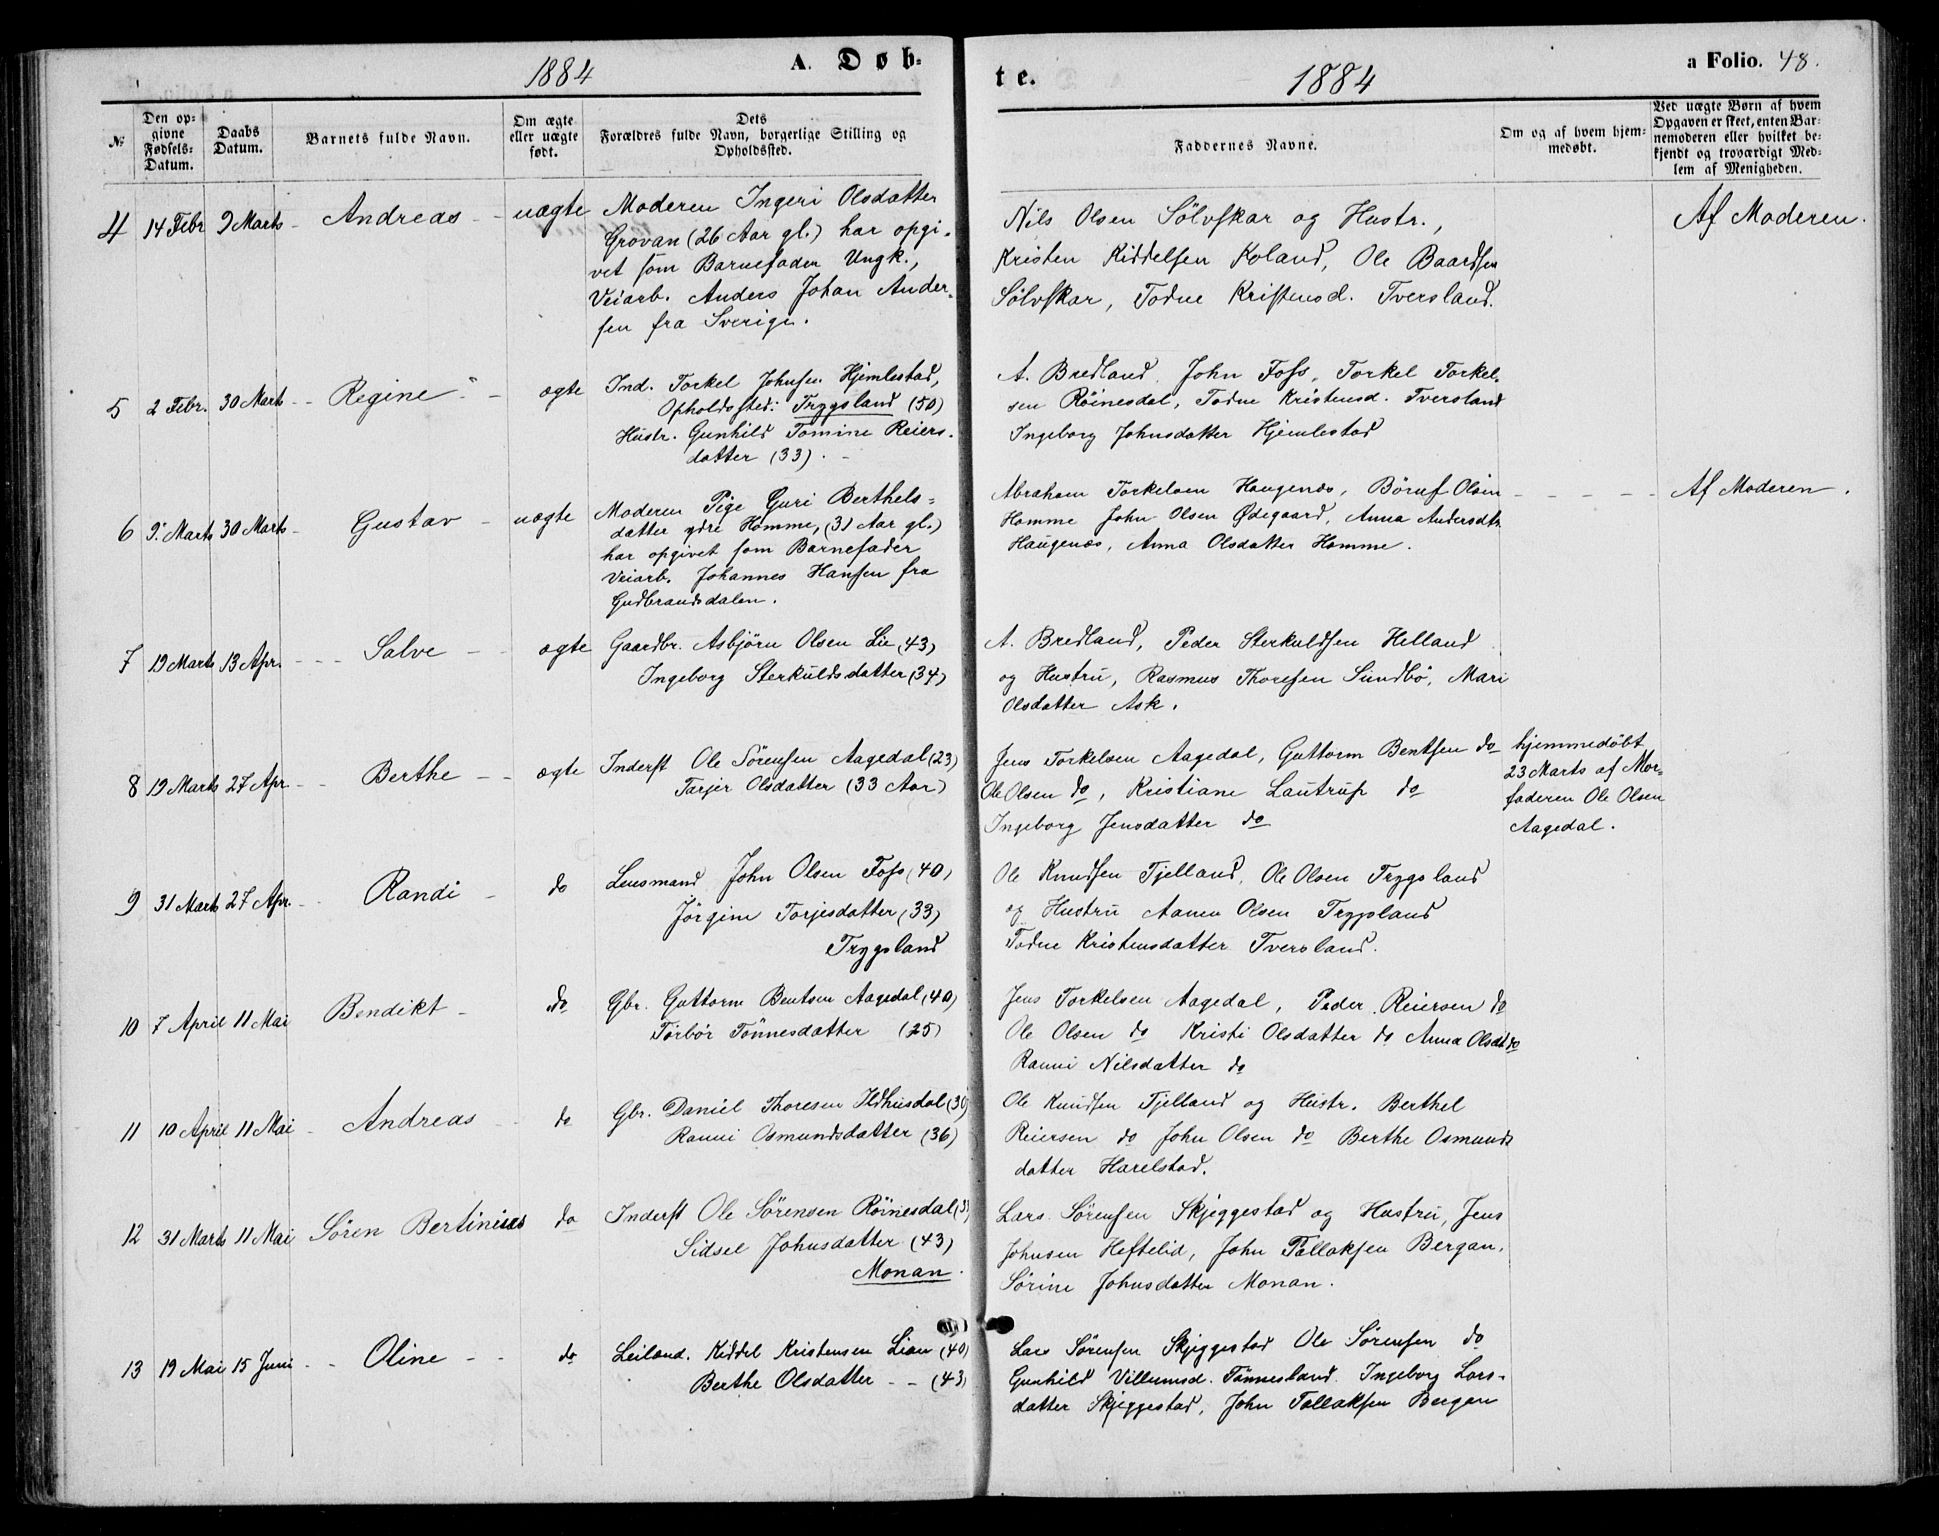 1884 A. Døb-
te. 1884 a Folio. 48.
No
Den op-
givne
Fødsels-
Datum.
Daabs
Datum.
Barnets fulde Navn.
Om ægte
eller uægte
født.
Dets
Forældres fulde Navn, borgerlige Stilling og
Opholdssted.
Faddernes Navne.
Om og af hvem hjem-
medøbt.
Ved uægte Børn af hvem
Opgaven er skeet, enten Bar-
nemoderen eller hvilket be-
kjendt og troværdigt Med-
lem af Menigheden.
4 14 Febr 9 Marts Andreas uægte
Moderen Ingeri Olsdatter
Grovan (26 Aar gl.) har opgi-
vet som Barnefader Ungk.,
Veiarb. Anders Johan Ander-
sen fra Sverige.
Nils Olsen Sølvskar og Hustr.,
Kristen Kiddelsen Koland, Ole Baardsen
Sølvskar, Todne Kristensd. Tversland.
Af Moderen.
5 2 Febr. 30 Marts Regine ægte
Ind. Torkel Johnsen Hjemlestad,
Opholdssted: Trygsland (50)
Hustr. Gunhild Tomine Reiers-
datter (33).
A. Bredland, John Foss, Torkel Torkel-
sen Röinesdal, Todne Kristensd. Tversland
Ingeborg Johnsdatter Hjemlestad
6 9. Marts 30 Marts Gustav uægte
Moderen Pige Guri Berthels-
datter ydre Homme, (31 Aar gl.)
har opgivet som Barnefader
Veiarb. Johannes Hansen fra
Gudbrandsdalen.
Abraham Torkelsen Haugenæs, Böruf Olsen
Homme John Olsen Ødegaard, Anna Andersdtr.
Haugenæs, Anna Olsdatter Homme.
Af Moderen.
7 19 Marts 13 Apr. Salve ægte
Gaardbr. Asbjörn Olsen Lie (43)
Ingeborg Sterkuldsdatter (34)
A. Bredland, Peder Sterkuldsen Helland
og Hustru, Rasmus Thoresen Sundbö, Mari
Olsdatter Ask.
8 19 Marts 27 Apr. Berthe ægte
Inderst Ole Sörensen Aagedal (23)
Tarjer Olsdatter (33 Aar)
Jens Torkelsen Aagedal, Guttorm Bentsen do
Ole Olsen do, Kristiane Lautrup do
Ingeborg Jensdatter do
hjemmedöbt
23 Marts af Mor-
faderen Ole Olsen
Aagedal.
9 31 Marts 27 Apr. Randi do
Lensmand John Olsen Foss (40)
Jörgine Torjesdatter (33)
Trygsland
Ole Knudsen Tjelland, Ole Olsen Trygsland
og Hustru Aanen Olsen Trygsland
Todne Kristensdatter Tversland.
10 7 April 11 Mai Bendikt do
Gbr. Guttorm Bentsen Aagedal (40)
Torbör Tönnesdatter (25)
Jens Torkelsen Aagedal, Peder Reiersen do
Ole Olsen do Kristi Olsdatter do Anna Olsdt do
Ranni Nilsdatter do
11 10 April 11 Mai Andreas do
Gbr. Daniel Thoresen Ildhusdal
Ranni Osmundsdatter (36)
Ole Knudsen Tjelland og Hustr. Berthel
Reiersen do John Olsen do Berthe Osmunds
datter Harelstad.
12 31 Marts 11 Mai Sören Bertinius do
Inderst Ole Sörensen Röinesdal
Sidsel Johnsdatter (43)
Monan.
Lars Sörensen Skjeggestad og Hustru, Jens
Johnsen Heftelid, John Tallaksen Bergan.
Sörine Johnsdatter Monan.
13 19 Mai 15 Juni Oline do
Leiland. Kiddel Kristensen Lian (40)
Berthe Olsdatter (43)
Lars Sörensen Skjeggestad Ole Sörensen do
Gunhild Villumsd. Tönnesland. Ingeborg Lars-
datter Skjeggestad, John Tallaksen Bergan